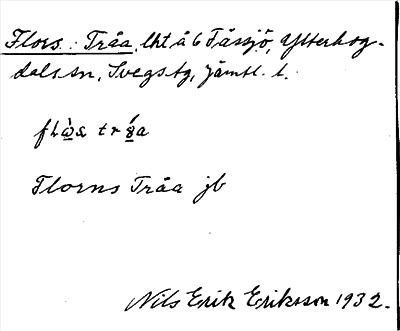 Flors Tråa, lht å 6 Fåssjö, Ytterhog-
dals sn, Svegs tg, Jämtl. l.
Florns Tråa jb
Nils Erik Eriksson 1932.